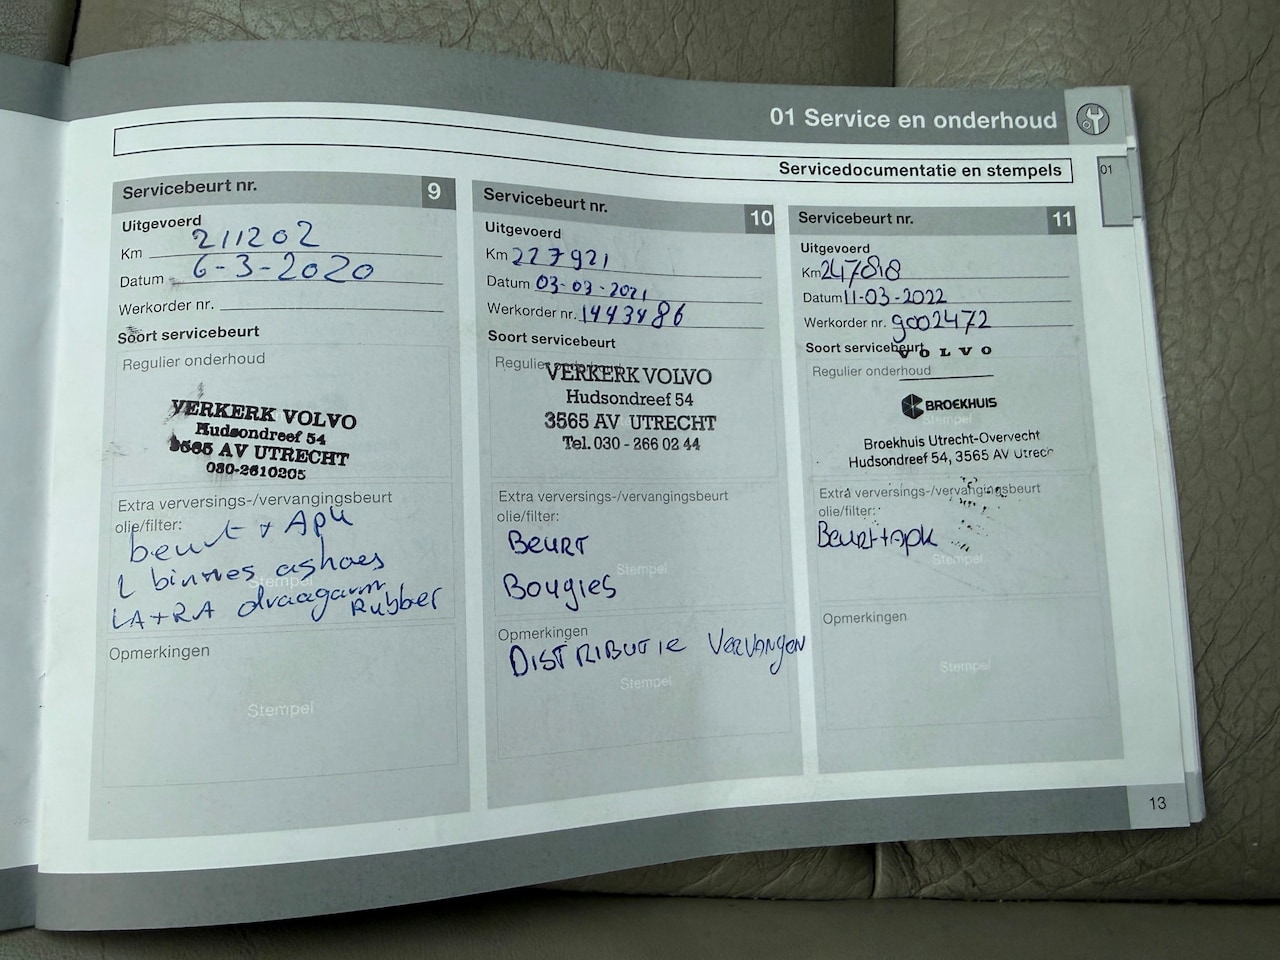 01 Service en onderhoud
Servicedocumentatie en stempels
01
Servicebeurt nr. 9
Uitgevoerd
Km 211202
Datum 6-3-2020
Werkorder nr.
Soort servicebeurt
Regulier onderhoud
VERKERK VOLVO
Hudsondreef 54
3565 AV UTRECHT
030-2610205
Extra verversings-/vervangingsbeurt
olie/filter:
beurt + Apk
2 binnes ashoes
Stempel
LA+RA draagarm
Rubber
Opmerkingen
Stempel
Servicebeurt nr. 10
Uitgevoerd
Km 227921
Datum 03-03-2021
Werkorder nr. 1443486
Soort servicebeurt
Regulier onderhoud
VERKERK VOLVO
Hudsondreef 54
3565 AV UTRECHT
Tel. 030 - 266 02 44
Extra verversings-/vervangingsbeurt
olie/filter:
BEURT
Stempel
Bougies
Opmerkingen
DISTRIBUTIE VERVANGEN
Stempel
Servicebeurt nr. 11
Uitgevoerd
Km 247818
Datum 11-03-2022
Werkorder nr. 9002472
Soort servicebeurt
VOLVO
Regulier onderhoud
BROEKHUIS
Stempel
Broekhuis Utrecht-Overvecht
Hudsondreef 54, 3565 AV Utrecht
Extra verversings-/vervangingsbeurt
olie/filter:
Beurt+apk
Stempel
Opmerkingen
Stempel
13